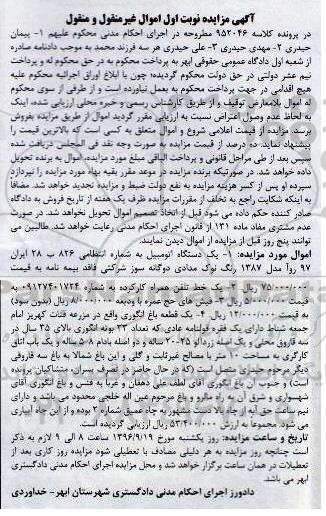 آگهی مزایده نوبت اول اموال غیرمنقول و منقول
در پرونده کلاسه ۹۵۲۰۴۶ مطروحه در اجرای احکام مدنی محکوم علیهم ۱- پیمان
حیدری ۲- مهدی حیدری ۳- علی حیدری هر سه فرزند محمد به موجب دادنامه صادره
از شعبه اول دادگاه عمومی حقوقی ابهر به پرداخت محکوم به در حق محکوم له و پرداخت
نیم عشر دولتی در حق دولت محکوم گردیده؛ چون با ابلاغ اوراق اجرائیه محکوم علیه
هیچ اقدامی در جهت پرداخت محکوم به بعمل نیاورده است و از طرفی از سوی محکوم
له اموال بلامعارض توقیف و از طریق کارشناس رسمی و خبره محلی ارزیابی شده، اینک
به لحاظ عدم وصول اعتراض نسبت به ارزیابی مقرر گردید اموال از طریق مزایده بفروش
برسد. مزایده از قیمت اعلامی شروع و اموال متعلق به کسی است که بالاترین قیمت را
پیشنهاد نماید. ده درصد از قیمت مزایده به صورت وجه نقد فی المجلس دریافت شده
سپس بعد از طی مراحل قانونی و پرداخت الباقی مبلغ مورد مزایده، اموال به برنده تحویل
داده خواهد شد. در صورتیکه برنده مزایده در موعد مقرر بقیه بهاء مورد مزایده را نپردازد
سپرده او پس از کسر هزینه مزایده به نفع دولت ضبط و مزایده تجدید خواهد شد. مضافا
به اینکه شکایت راجع به تخلف از مقررات مزایده ظرف یک هفته از تاریخ فروش به دادگاه
صادر کننده حکم داده می شود قبل از اتخاذ تصمیم اموال تحویل نخواهد شد. در صورت
عدم مشتری مفاد ماده ۱۳۱ از قانون اجرای احکام مدنی رعایت خواهد شد. طالبین می
توانند پنج روز قبل از مزایده از اموال دیدن نمایند.
اموال مورد مزایده: ۱- یک دستگاه اتومبیل به شماره انتظامی ۸۲۶ ب ۲۸ ایران
۹۷ روآ مدل ۱۳۸۷ رنگ نوک مدادی دوگانه سوز شرکتی فاقد بیمه نامه به قیمت
۷۵/۰۰۰/۰۰۰ ریال ۲- یک خط تلفن همراه کارکرده به شماره ۰۹۱۲۷۴۰۱۷۲۴ به
قیمت ۵/۰۰۰/۰۰۰ ریال ۳- فیش های حج عمره با ودیعه ۸/۰۰۰/۰۰۰ ریال (بدون سود)
به قیمت ۱۲/۰۰۰/۰۰۰ ریال. ۴- یک قطعه باغ انگوری واقع در مزرعه قنات کهریز امام
جمعه شناط دارای یک فقره قولنامه عادی که تعداد ۲۳ بوته انگوری بالای ۳۵ سال در
سه فاروق محلی و یک اصله زردآلو ۲۵-۳۰ ساله و دو اصله بادام ۸-۵ ساله و یک باب اتاق
کارگری به مساحت ۱۰ متر با مصالح غیرثابت و گلی و این باغ شمالا به باغ سه فاروقی
دیگر مرحوم حیدری متصل است (که در حال حاضر در تصرف پسران، متشاکیان پرونده
است) و جنوب آن باغ انگوری آقای لطف علی دهقان و غربا به فنس و باغ انگوری آقای
شهسواری و شرق آن به راه مالرو و باغ مرحوم عین اله خلجی محدود می باشد و دارای
نیم ساعت حق آبه از چاه بالا دست مشهور به چاه عمیق شماره ۲ بوده و از این چاه آبیاری
می شود. مجموعا به ارزش ۵۳/۴۰۰/۰۰۰ ریال ارزیابی گردیده است.
تاریخ و ساعت مزایده: روز یکشنبه مورخ ۱۳۹۶/۹/۱۹ ساعت ۸ الی ۹ لازم به ذکر
است چنانچه روز مزایده به هر دلیلی مصادف با تعطیلی شود مزایده روز کاری بعد از
تعطیلات در همان ساعت برگزار خواهد شد و محل مزایده اجرای احکام مدنی دادگستری
ابهر می باشد.
دادورز اجرای احکام مدنی دادگستری شهرستان ابهر- خداوردی